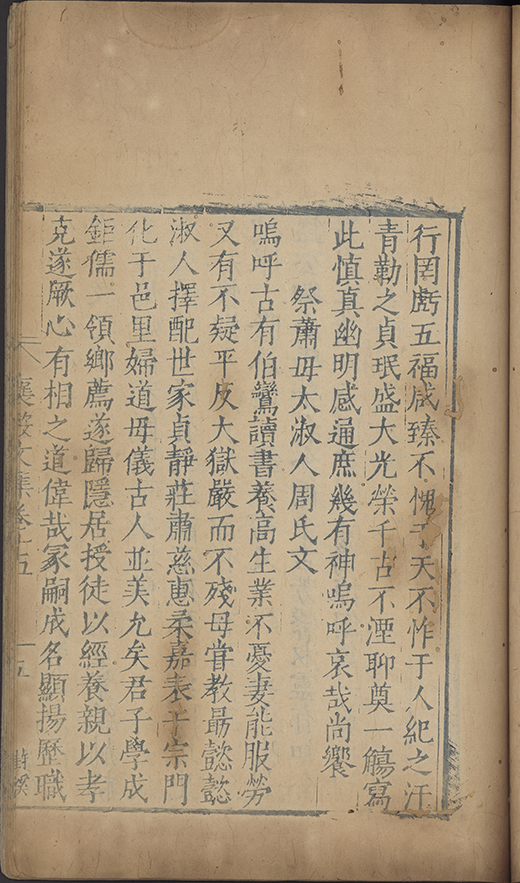 行罔虧五福咸臻不愧于天不怍于人紀之汗
青勒之貞珉盛大光榮千古不湮聊奠一觴寫
此慎真幽明感通庶幾有神嗚呼哀哉尚饗
祭蕭母太淑人周氏文
嗚呼古有伯鸞讀書養高生業不憂妻能服勞
又有不疑平反大獄嚴而不殘母甞教勗懿懿
淑人擇配世家貞靜莊肅慈惠柔嘉表于宗門
化于邑里婦道母儀古人並美允矣君子學成
鉅儒一領鄉薦遂歸隱居授徒以經養親以孝
克遂厥心有相之道偉哉冡嗣成名顯揚歷職
襄毅文集卷十五 十五